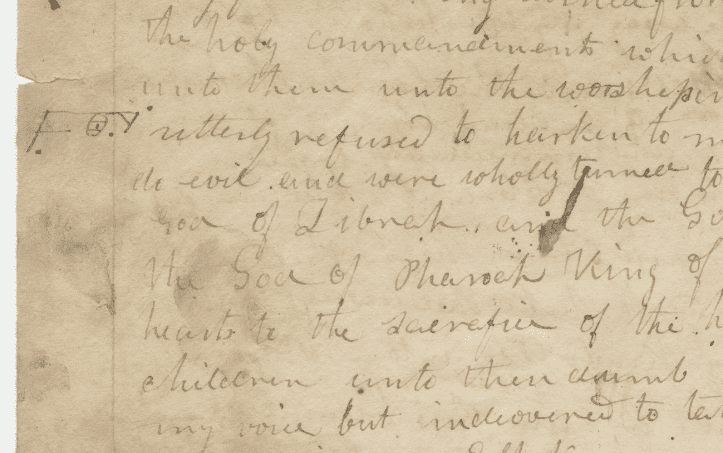 turned from
the holy commandments which
unto them unto the worshiping
utterly refused to harken to m
do evil and were wholly turned to
God of Zibnah, and the Go
the God of Pharoah King of
hearts to the sacrafice of the h
children unto then dumb
my voice but indeovered to ta